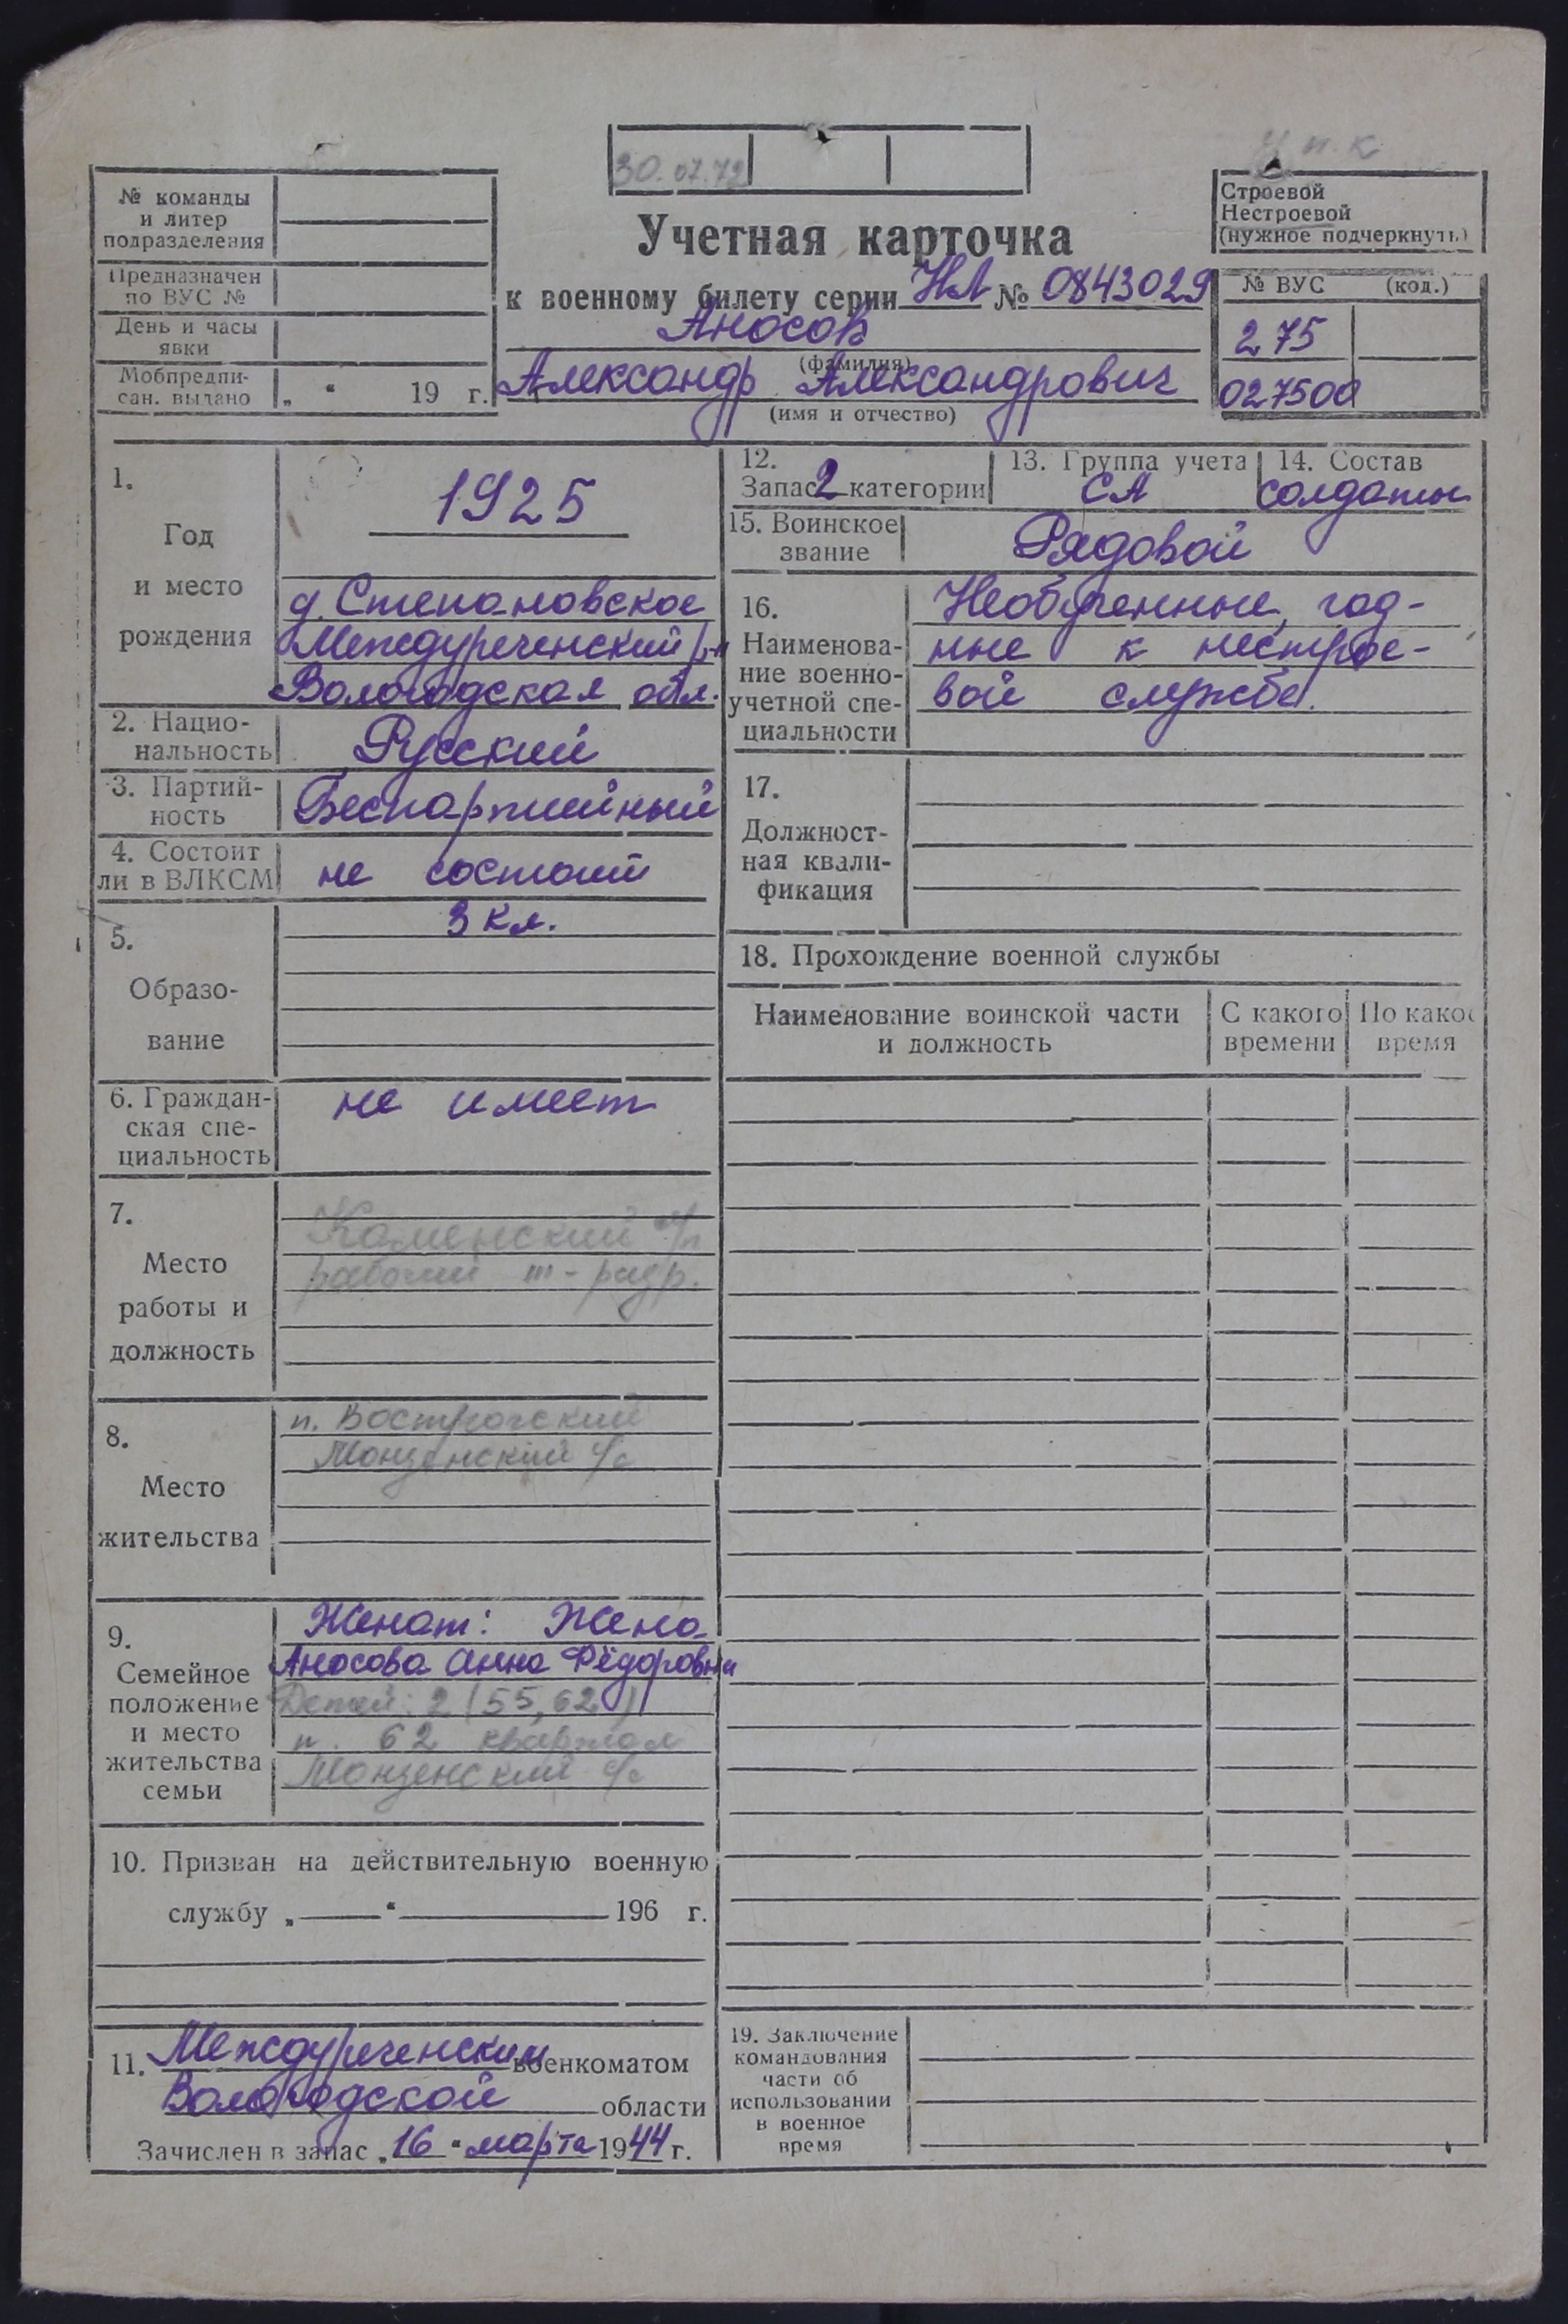 30.07.72
у п. к
№ команды
и литер
подразделения
Предназначен
по ВУС №
День и часы
явки
Мобпредпи-
сан. выдано „ “ 19 г.
Учетная карточка
к военному билету серии НЛ № 0843029
Аносов
(фамилия)
Александр Александрович
(имя и отчество)
Строевой
Нестроевой
(нужное подчеркнуть)
№ ВУС (код.)
275
027500
1.
Год
и место
рождения
1925
д. Степановское
Междуреченский р-н
Вологодская обл.
2. Нацио-
нальность Русский
3. Партий-
ность Беспартийный
4. Состоит
ли в ВЛКСМ не состоит
5.
Образо-
вание
3 кл.
6. Граждан-
ская спе-
циальность
не имеет
7.
Место
работы и
должность
Каменский
рабочий
8.
Место
жительства
п. Вострогский
Монзенский с/с
9.
Семейное
положение
и место
жительства
семьи
Женат: Жена
Аносова Анна Фёдоровна
Детей: 2 (55, 62)
п. 62 квартал
Монзенский с/с
10. Призван на действительную военную
службу „ “ 196 г.
11. Междуреченским военкоматом
Вологодской области
Зачислен в запас „16“ марта 1944 г.
12.
Запас 2 категории
13. Группа учета
СА
14. Состав
солдаты
15. Воинское
звание
Рядовой
16.
Наименова-
ние военно-
учетной спе-
циальности
Необученные, год-
ные к нестрое-
вой службе.
17.
Должност-
ная квали-
фикация
18. Прохождение военной службы
Наименование воинской части
и должность
С какого
времени
По какое
время
19. Заключение
командования
части об
использовании
в военное
время